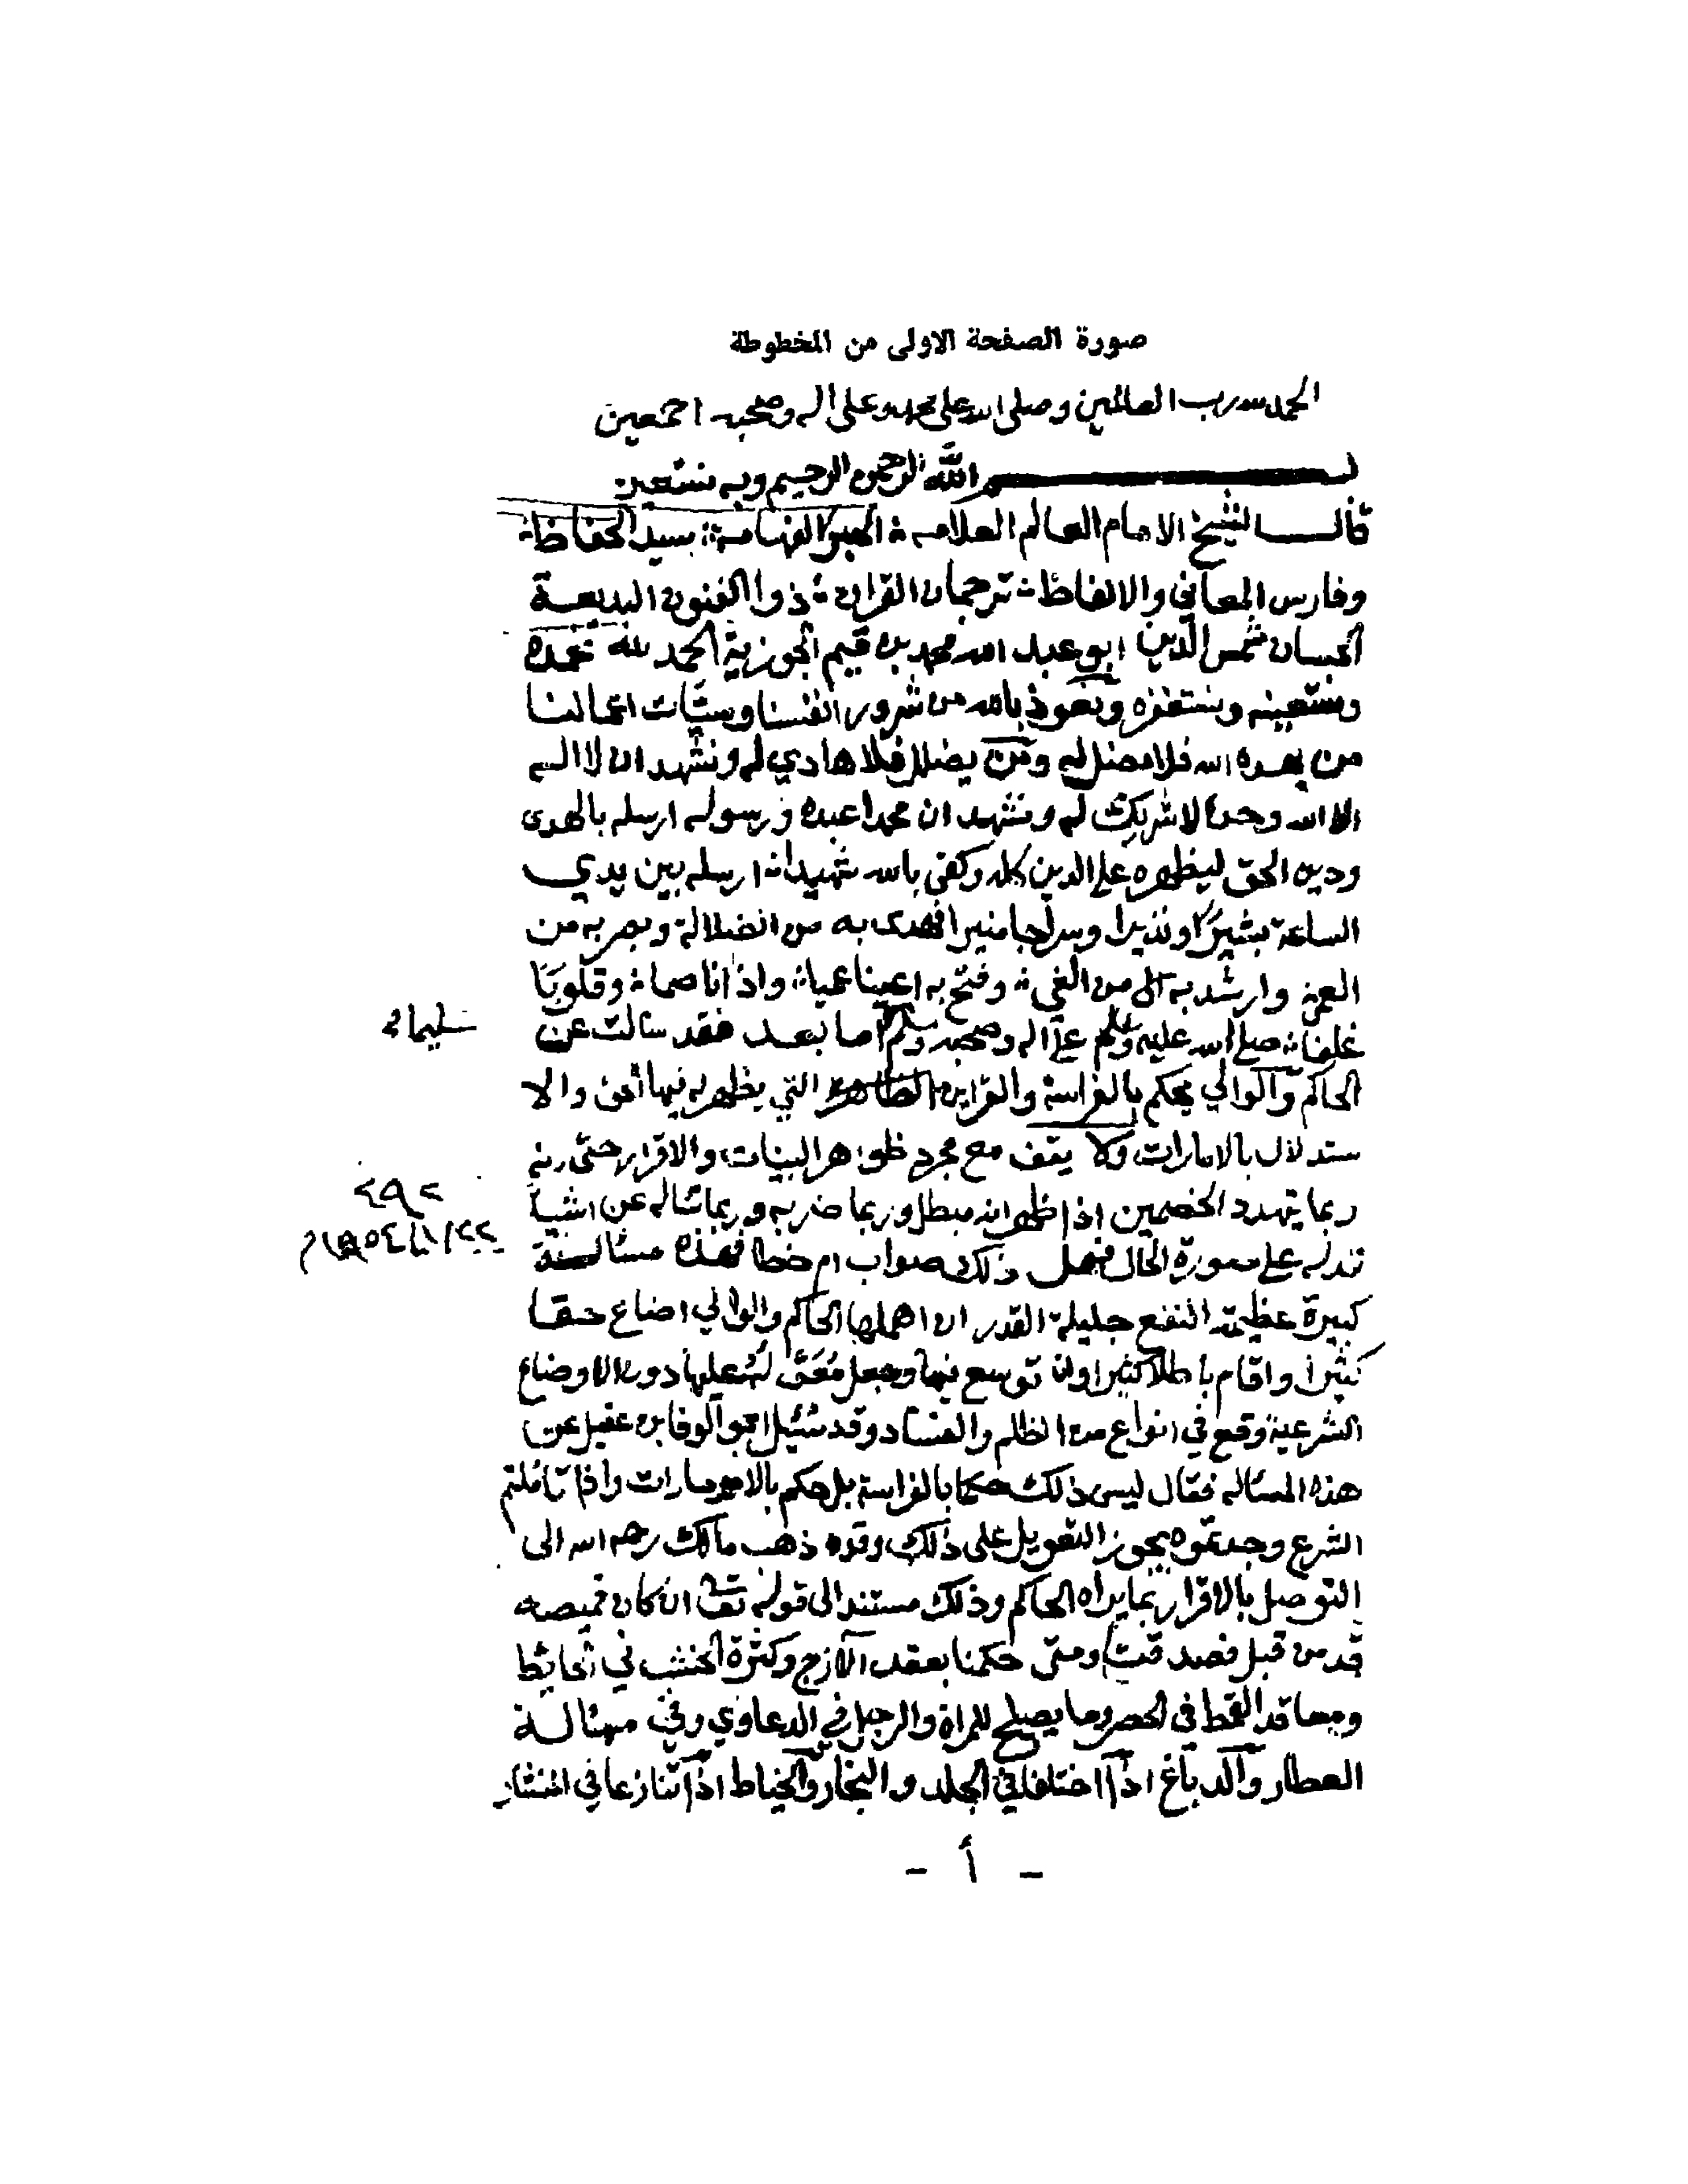 صورة الصفحة الاولى من المخطوطة
الحمد لله رب العالمين وصلى الله على محمد وعلى اله وصحبه اجمعين
بسم الله الرحمن الرحيم وبه نستعين
قال الشيخ الامام العالم العلامه الحبر الفهامة سيد الحفاظ
وفارس المعاني والالفاظ ترجمان القران ذوا الفنون البديعة
الحسان شمس الدين ابو عبد الله محمد بن قيم الجوزية الحمد لله نحمده
ونستعينه ونستغفره ونعوذ بالله من شرور انفسنا وسيّات اعمالنا
من يهده الله فلا مضل له ومن يضلل فلا هادي له ونشهد ان لا اله
الا الله وحده لا شريك له ونشهد ان محمدا عبده ورسوله ارسله بالهدى
ودين الحق ليظهره على الدين كله وكفى بالله شهيدا ارسله بين يدي
الساعة بشيرا ونذيرا وسراجا منيرا فهدى به من الضلالة وبصر به من
العمى وارشد به من الغي وفتح به اعينا عميا واذانا صما وقلوبا
غلفا صلى الله عليه وسلم وعلى اله وصحبه وسلم اما بعد فقد سالت عن
سليمان
الحاكم والوالي يحكم بالفراسة والقراين الظاهره التي يظهر له فيها الحق والا
ستدلال بالامارات ولا يقف مع مجرد ظواهر البينات والاقرار حتى انه
ربما يتهدد الخصمين اذا ظهر انه مبطل وربما ضربه وربما ساله عن اشيا
٢٩٢
٢٢/١/١٩٥٤م
تدله على صورة الحال فهل ذلك صواب ام خطا فهذه مسالة
كبيرة عظيمة النفع جليلة القدر ان اهملها الحاكم والوالي اضاع حقا
كثيرا واقام باطلا كثيرا وان توسع فيها وجعل معوّله عليها دون الاوضاع
الشرعية وقع في انواع من الظلم والفساد وقد سئل ابو الوفا بن عقيل عن
هذه المساله فقال ليس ذلك حكما بالفراسة بل حكم بالامارات واذا تاملتم
الشرع وجدتموه يجوز التعويل على ذلك وقد ذهب مالك رحمه الله الى
التوصل بالاقرار بما يراه الحاكم وذلك مستند الى قوله تعالى ان كان قميصه
قد من قبل فصدقت ومتى حكمنا بعقد الازج وكثرة الخشب في الحائط
ومعاقد القمط في الخصر وما يصلح للمراة والرجل في الدعاوي وفي مسالة
العطار والدباغ اذا اختلفا في الجلد والنجار والخياط اذا تنازعا في المنشار
- أ -